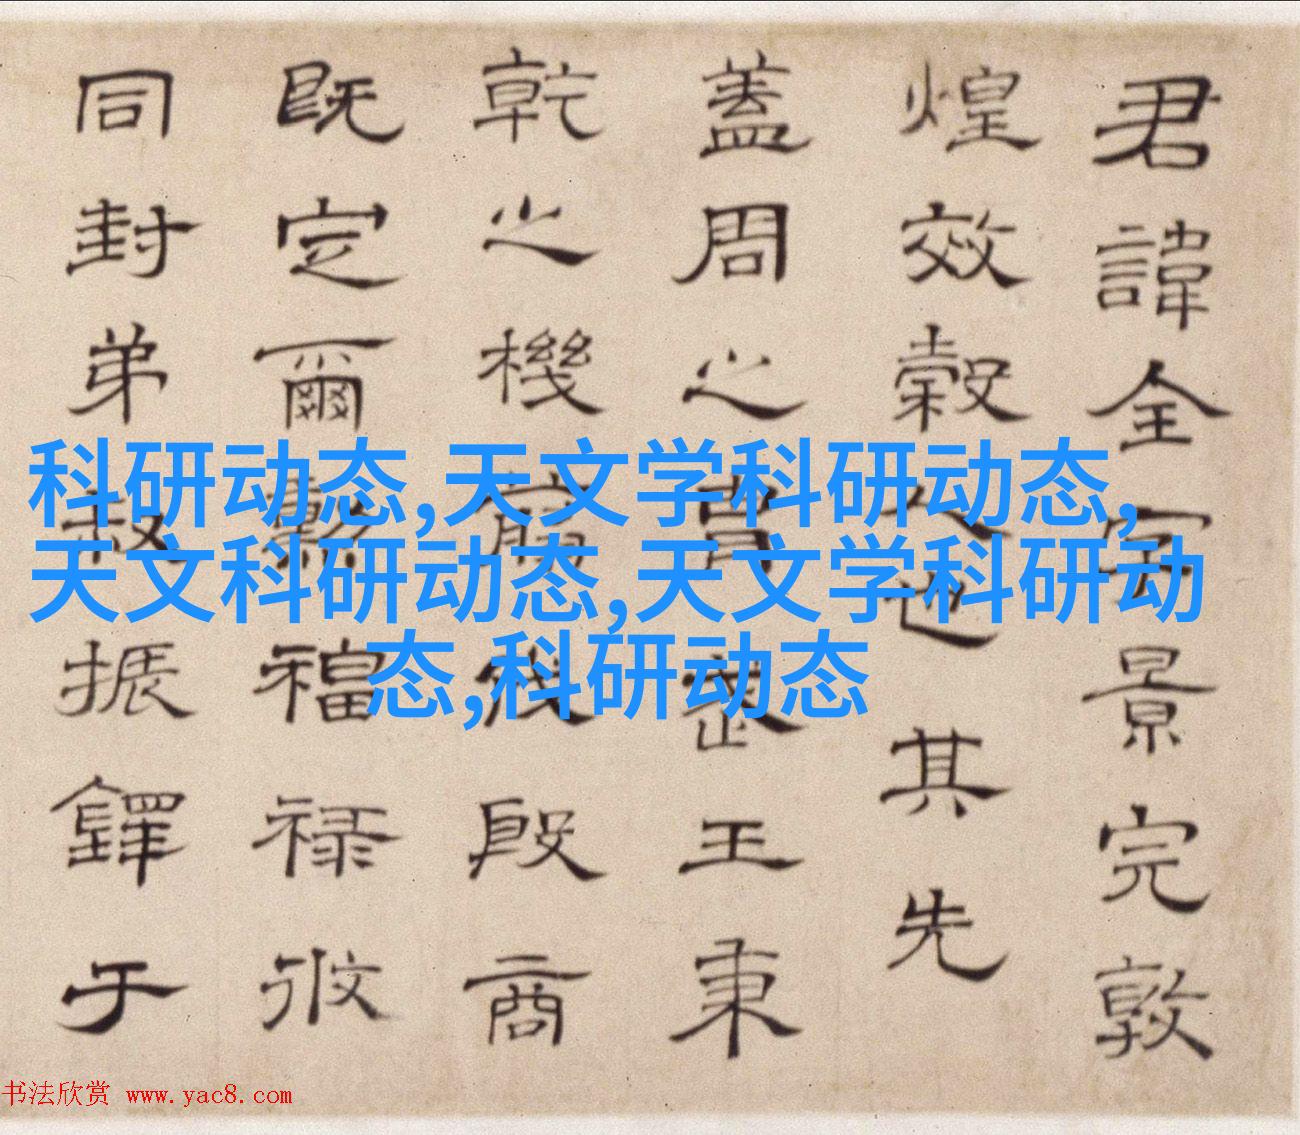 君諱全字景完敦
煌效穀人也其先
蓋周之胄武王秉
乾之機翦伐殷商
既定爾勳福禄攸
同封弟叔振鐸于
科研动态,天文学科研动态,
天文科研动态,天文学科研动
态,科研动态
书法欣赏 www.yac8.com